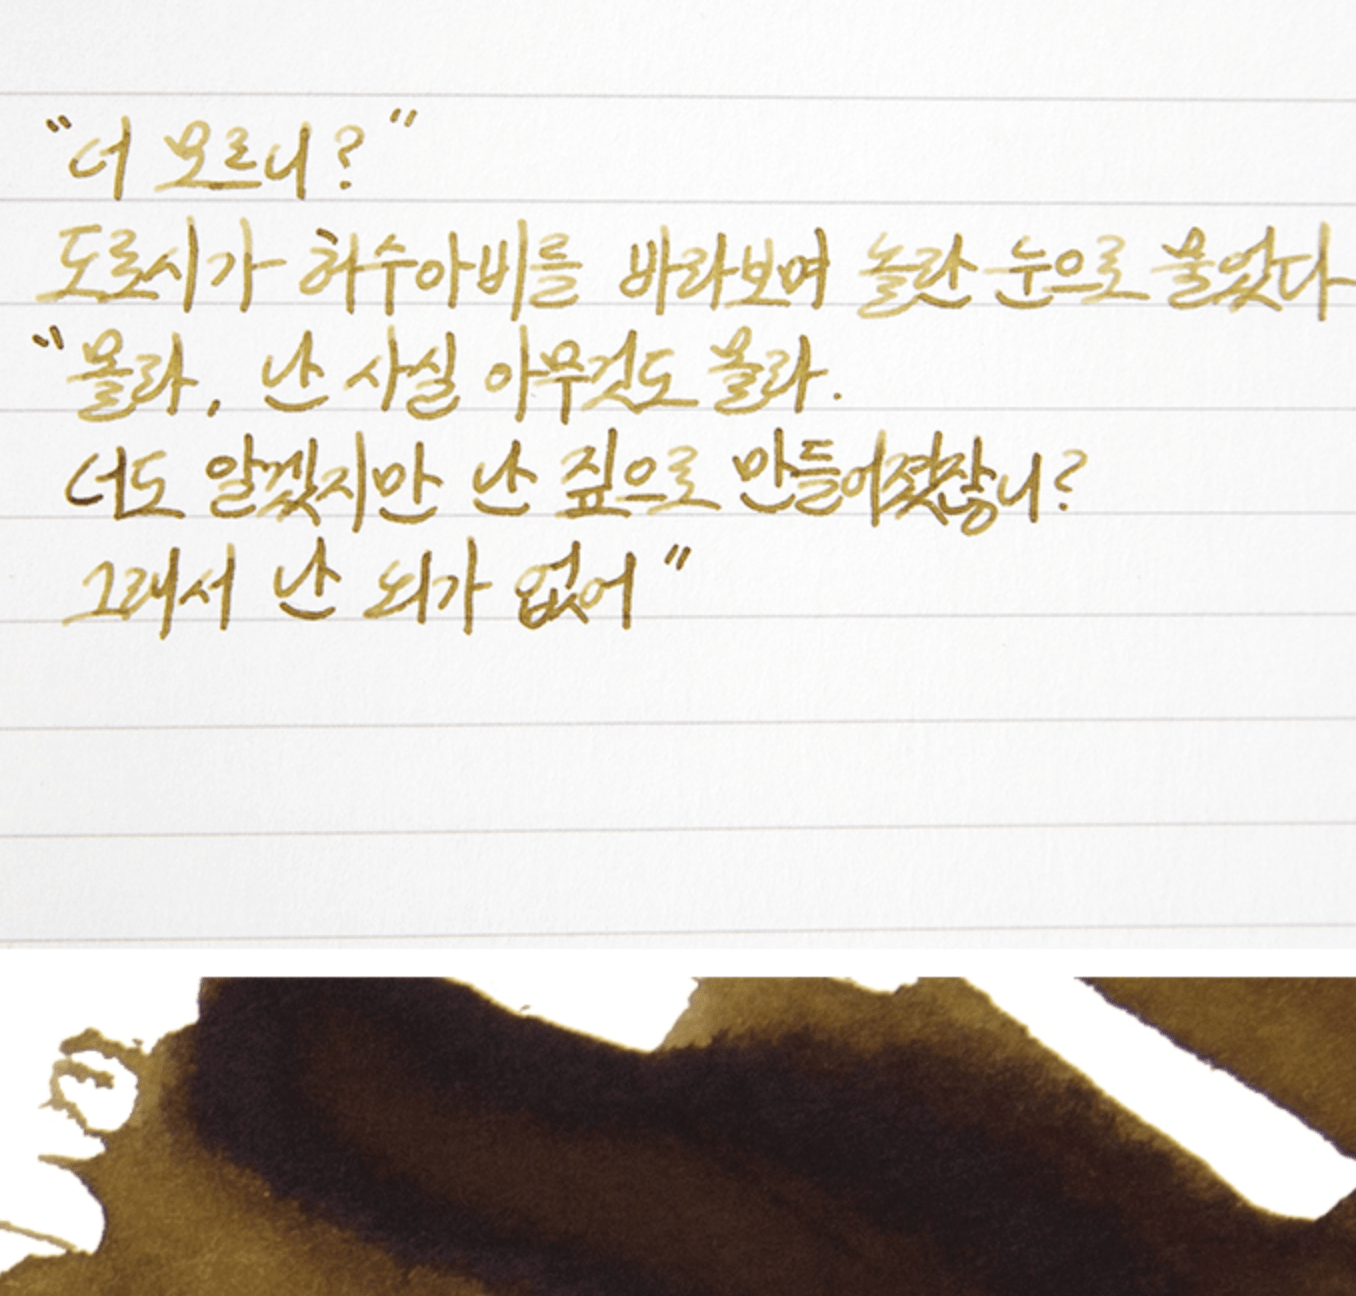 "너 모르니?"
도로시가 허수아비를 바라보며 놀란 눈으로 물었다
"몰라, 난 사실 아무것도 몰라.
너도 알겠지만 난 짚으로 만들어졌잖니?
그래서 난 뇌가 없어"